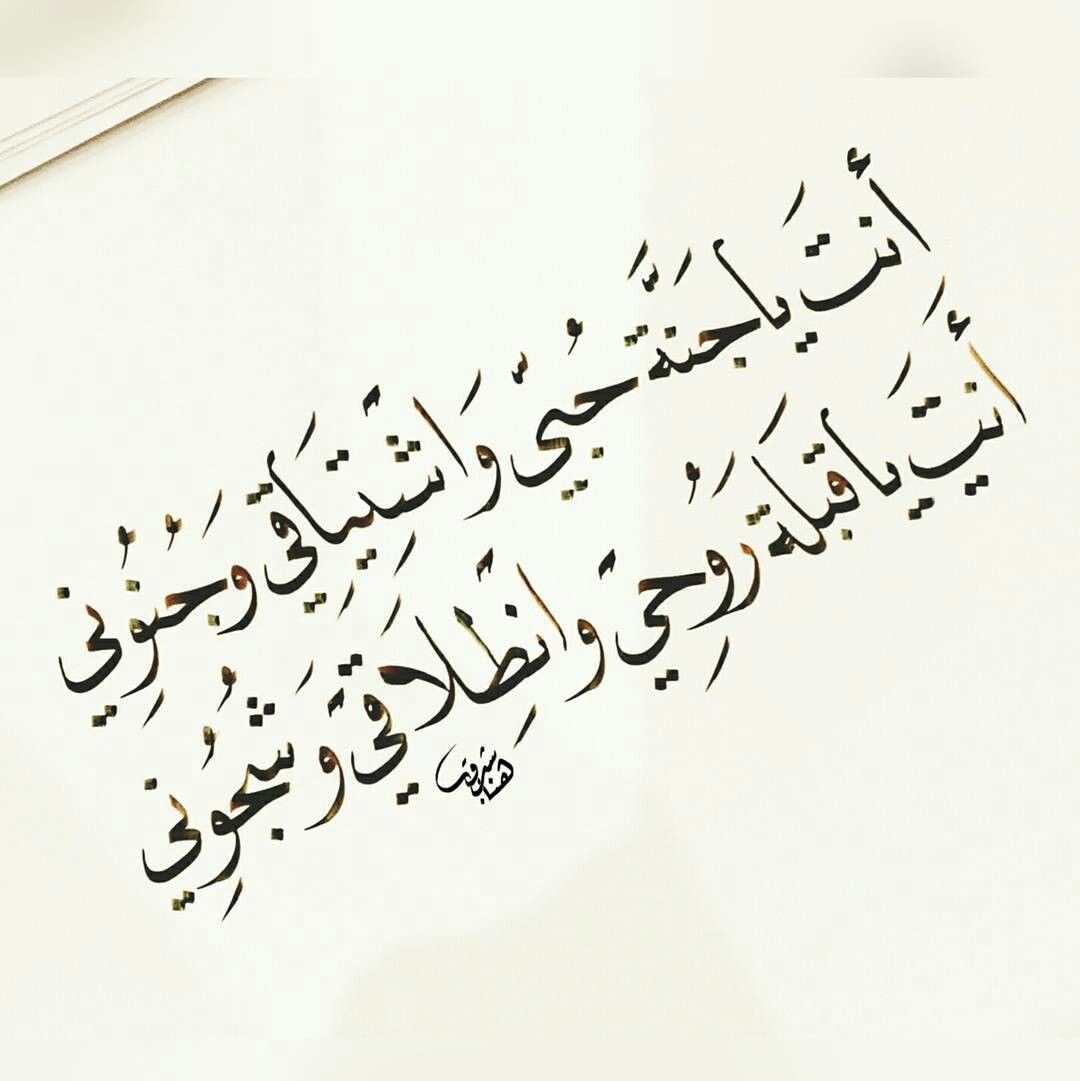 أَنتَ يَا جَنَّةَ حُبّي وَاشْتِيَاقي وَجُنُوني
أَنتَ يَا قبلَةَ رُوحي وَانْطِلَاقي وَشُجُوني